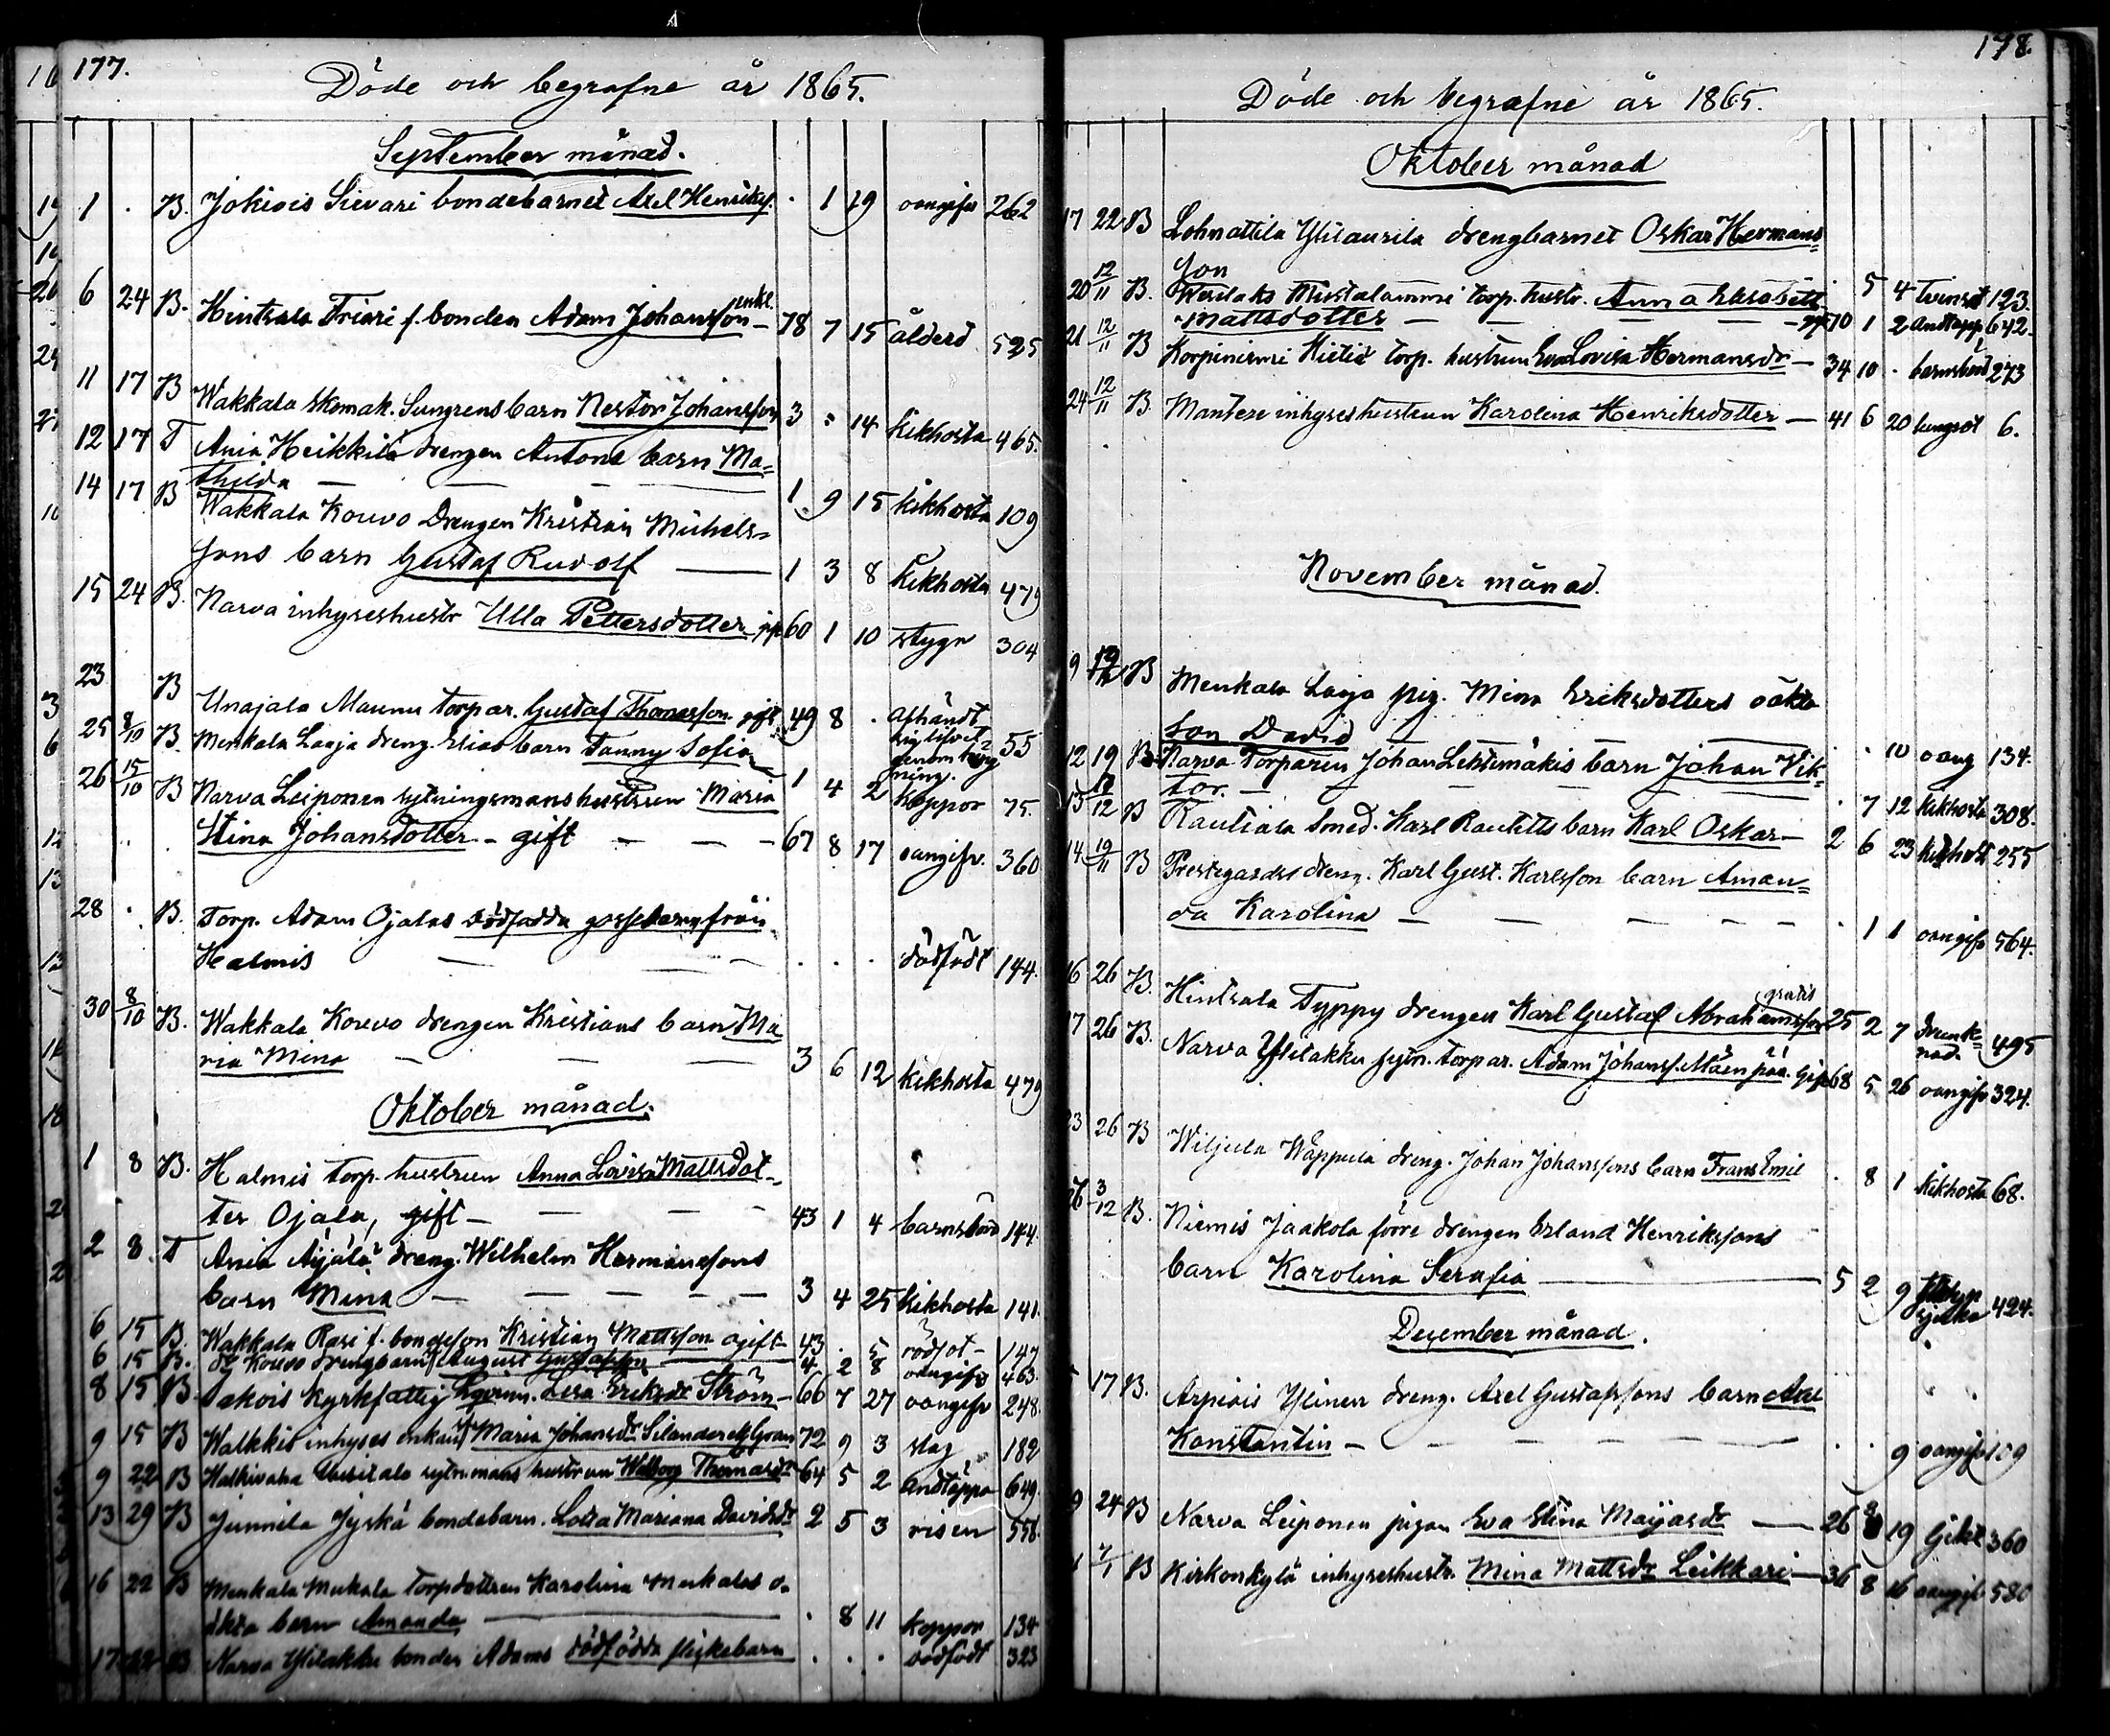 177.
Döde och begrafne år 1865.
September månad.
1 . B. Jokiois Sievari bondebarnet Axel Henriksf. . 1 19 oangifv 262
6 24 B. Hintsala Friari f. bonden Adam Johansson enkl. 78 7 15 ålderd 525
11 17 B Wakkala skomak. Sungrens barn Nestor Johansson 3 . 14 Kikhosta 465.
12 17 T Ania Heikkilä drengen Antons barn Ma=
thilda — — — 1 9 15 Kikhosta 109
14 17 B Wakkala Kouvo Drengen Kristian Michels=
sons barn Gustaf Rudolf — 1 3 8 Kikhosta 479
15 24 B. Narva inhyseshustr Ulla Pettersdotter 60 1 10 stygn 304
23 B Unajala Maunu torpar. Gustaf Thomasson gift 49 8 . afhändt
sig lifvet
genom häng
ning. 55
25 8/10 B Menkala Laaja dreng. Elias barn Fanny Sofia 1 4 2 Koppor 75.
26 15/10 B Narva Leiponen sytningsmanshustrun Maria
Stina Johansdotter - gift — — 67 8 17 oangifv. 360
28 . B. Torp. Adam Ojalas dödfödda gossebarn från
Halmis — — — . . . dödfödt 144.
30 8/10 B. Wakkala Kouvo drengen Kristians barn Ma
ria Mina — — — 3 6 12 Kikhosta 479
Oktober månad.
1 8 B. Halmis torp. hustrun Anna Lovisa Mattsdot-
ter Ojala, gift — — — 43 1 4 barnsbörd 144.
2 8 T Ania Äijälä dreng. Wilhelm Hermanssons
barn Mina — — — 3 4 25 Kikhosta 141.
6 15 B. Wakkala Rasi f. bondeson Kristian Mattsson ogift 43 . 5 rödsot 147
6 15 B. d:o Kouvo drengbarn August Gustafsson 4 2 8 oangifv 463.
8 15 B Jakois kyrkfattig Lisa Eriksdr Ström — 66 7 27 oangifv 248.
9 15 B Walkkis inhyses enkan Maria Johansdr Silander 72 9 3 slag 182
9 22 B Halkivaha Uusitalo sytn.mans hustrun Walborg Thomasdr 64 5 2 andtäppa 649.
13 29 B Junnila Jyskä bondebarn. Lovisa Mariana Davidsdr 2 5 3 risen 558.
16 22 B Menkala Mukala torpdottren Karolina Mukalas o-
äkta barn Amanda — . 8 11 koppor 134
17 22 B Narva Ylitakku bonden Adams dödfödda flickebarn . . . dödfödt 323
178.
Döde och begrafne år 1865.
Oktober månad
17 22 B Lohnattila Ylitaurila drengbarnet Oskar Hermans
son . 5 4 123.
20 12/11 B. Wesilaks Mustalammi torp. hustr. Anna Elisabeth
Mattsdotter — — — 70 1 2 Andtäpp 642.
21 12/11 B Korpiniemi Hietis torp. hustrun Eva Lovisa Hermansdr — 34 10 . barnsbörd 273
24 12/11 B. Mantere inhyseshustrun Karolina Henriksdotter — 41 6 20 lungsot 6.
November månad.
9 B Menkala Laaja pig. Mina Eriksdotters oäkta
son David . . 10 oang 134.
12 19 B Narva Torparen Johan Lehtimäkis barn Johan Vik-
tor. — — — . 7 12 Kikhosta 308.
13 12 B Rautiala smed. Karl Rautells barn Karl Oskar — 2 6 23 kikhost 255
14 19/11 B Prestegårds dreng. Karl Gust. Karlsson barn Aman=
da Karolina — — — . 1 1 oangifv 564.
16 26 B. Hintsala Typpy drengen Karl Gustaf Abrahamsson 25 2 7 drunk-
nad. 495
17 26 B. Narva Ylitakku sytn. torpar. Adam Johans. Mäenpää. Gift 68 5 26 oangifv 324.
23 26 B Wiljula Wäppulä dreng. Johan Johanssons barn Frans Emil . 8 1 Kikhosta 68.
26 3/12 B. Niemis Jaakola förre drengen Erland Henrikssons
barn Karolina Serafia — 5 2 9 424.
December månad.
17 B. Arpiais Ylinen dreng. Axel Gustafssons barn Axel
Konstantin — — — . . 9 oangifv 109
9 24 B Narva Leiponen pigan Eva Stina Maijasdr — 26 8 19 Gikt 360
B Kirkonkylä inhyseshustr. Mina Mattsdr Leikkari — 36 8 16 oangifv 580